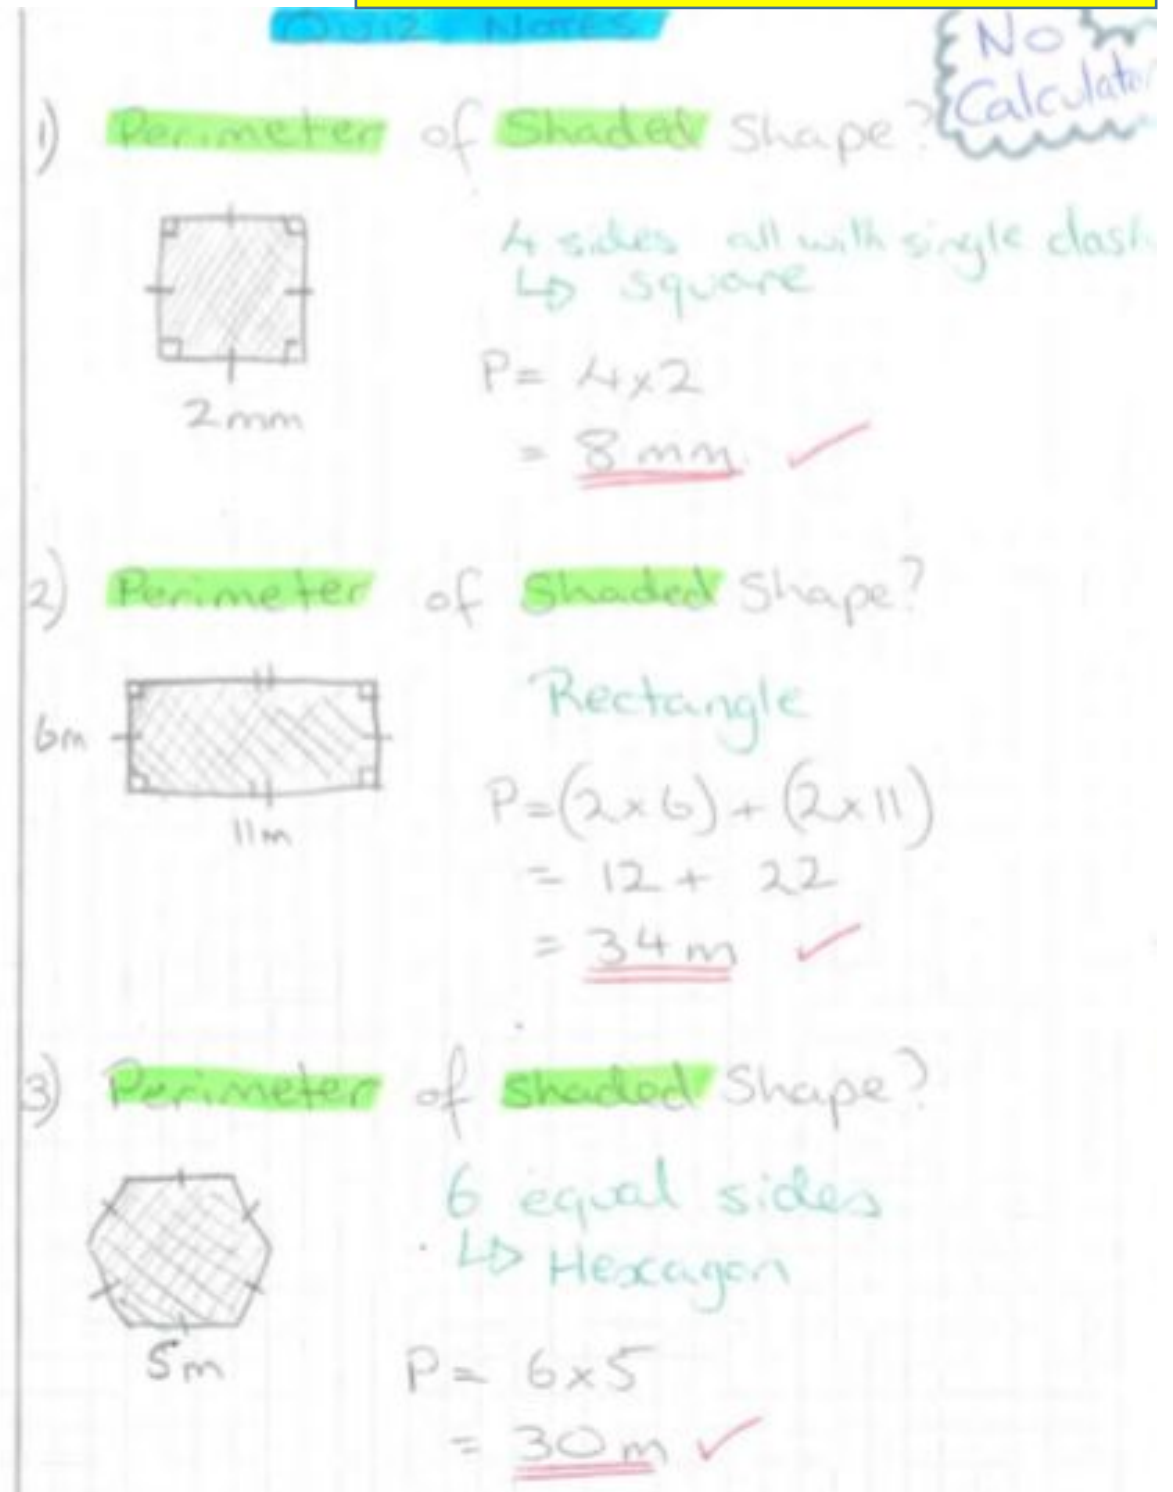 Quiz Notes
No
Calculator
1) Perimeter of Shaded Shape?
4 sides all with single dash
↳ square
2mm
P = 4x2
= 8 mm
2) Perimeter of Shaded Shape?
Rectangle
6m
11m
P=(2x6) + (2x11)
= 12 + 22
= 34 m
3) Perimeter of Shaded Shape?
6 equal sides
↳ Hexagon
5m
P = 6x5
= 30m